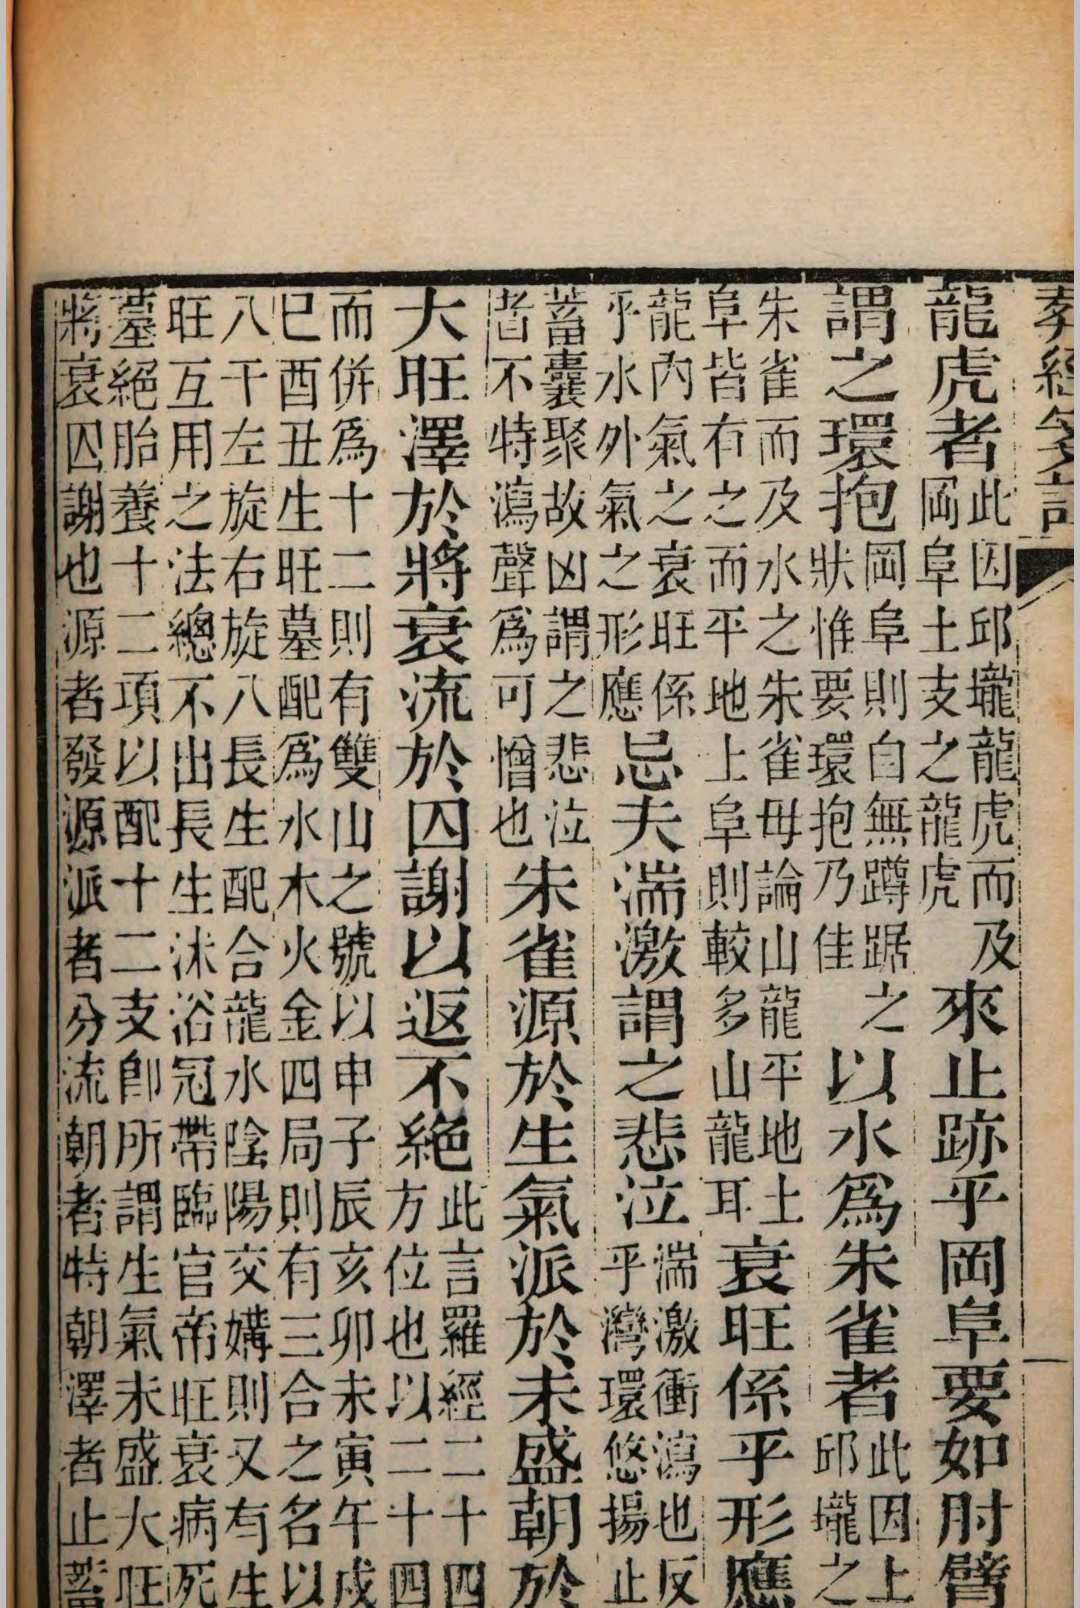 葬經箋註
龍虎者
此因邱壠龍虎而及
岡阜土支之龍虎
來止跡乎岡阜要如肘臂
謂之環抱
岡阜則自無蹲踞之
狀惟要環抱乃佳
以水爲朱雀者
此因上
邱壠之
朱雀而及水之朱雀毋論山龍平地土
阜皆有之而平地上阜則較多山龍耳
衰旺係乎形應
龍內氣之衰旺係
乎水外氣之形應
忌夫湍激謂之悲泣
湍激衝瀉也反
乎灣環悠揚止
蓄囊聚故凶謂之悲泣
者不特瀉聲爲可憎也
朱雀源於生氣派於未盛朝於
大旺澤於將衰流於囚謝以返不絕
此言羅經二十四
方位也以二十四
而併爲十二則有雙山之號以申子辰亥卯未寅午戌
巳酉丑生旺墓配爲水木火金四局則有三合之名以
八干左旋右旋八長生配合龍水陰陽交媾則又有生
旺互用之法總不出長生沐浴冠帶臨官帝旺衰病死
墓絕胎養十二項以配十二支卽所謂生氣未盛大旺
將衰囚謝也源者發源派者分流朝者特朝澤者止蓄